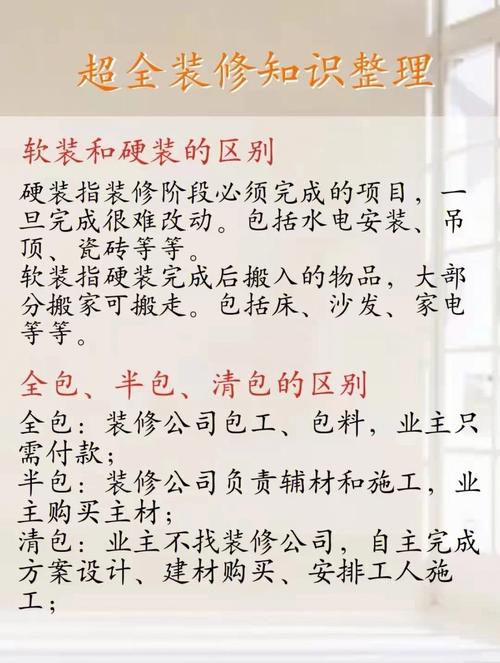 超全装修知识整理
软装和硬装的区别
硬装指装修阶段必须完成的项目，一
旦完成很难改动。包括水电安装、吊
顶、瓷砖等等。
软装指硬装完成后搬入的物品，大部
分搬家可搬走。包括床、沙发、家电
等等。
全包、半包、清包的区别
全包：装修公司包工、包料，业主只
需付款；
半包：装修公司负责辅材和施工，业
主购买主材；
清包：业主不找装修公司，自主完成
方案设计、建材购买、安排工人施
工；